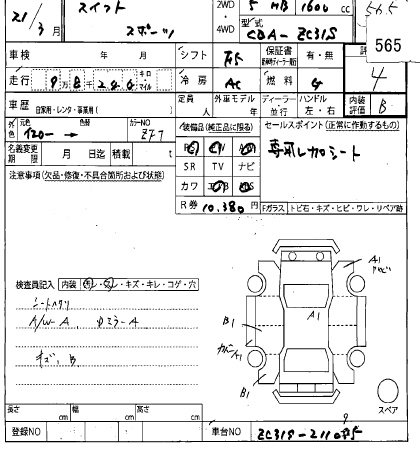 21/3月 スイフト スポーツ 2WD・4WD 5 HB 1600 cc
型式 CBA-ZC31S
565
車検 年 月 シフト 保証書 有・無
走行 9万8千246 キロ マイル 冷房 AC 燃料 G 4
車歴 自家用・レンタ・事業用( ) 定員 人 外車モデル 年 ディーラー 並行 ハンドル 左・右 内装 B
元色 色替 カラーNO ZF7
名義変更期限 月 日迄 積載 t
装備品(純正品に限る)
セールスポイント(正常に作動するもの)
専用レカロシート
SR TV ナビ
カワ
R券 10,380 円
注意事項(欠品・修復・不具合箇所および状態)
Fガラス トビ石・キズ・ヒビ・ワレ・リペア跡
検査員記入 内装 ・キズ・キレ・コゲ・穴
シートヘタリ
A/W-A ドミラーA
キズ、B
A1
A1
B1
B1
スペア
長さ cm 幅 cm 高さ cm
登録NO 車台NO